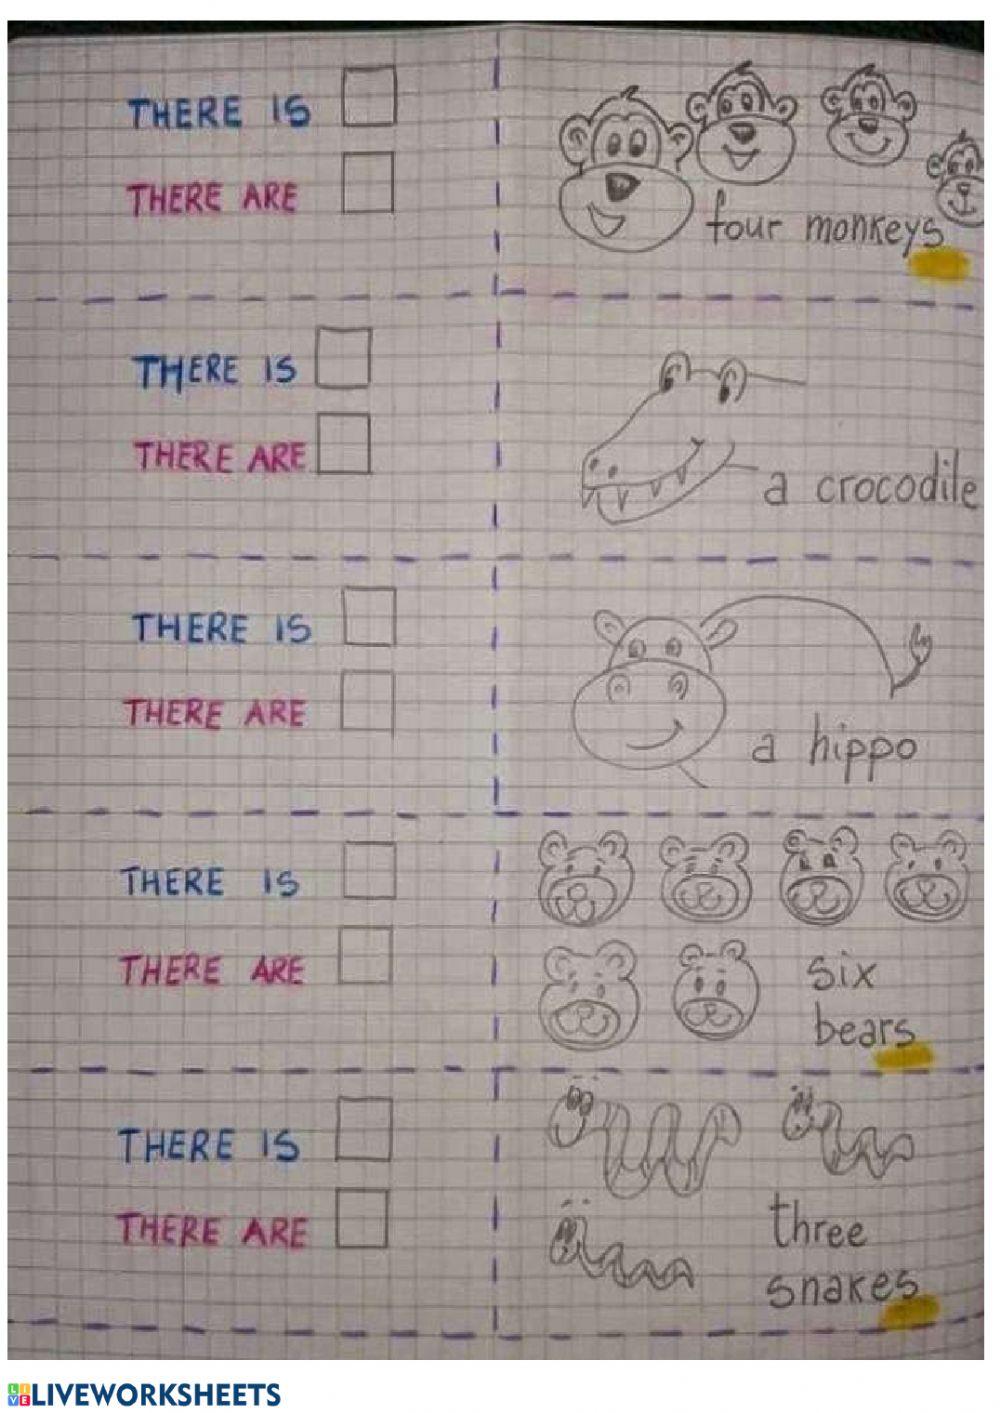 THERE IS
THERE ARE
four monkeys
THERE IS
THERE ARE
a crocodile
THERE IS
THERE ARE
a hippo
THERE IS
THERE ARE
six
bears
THERE IS
THERE ARE
three
snakes
LIVE LIVEWORKSHEETS